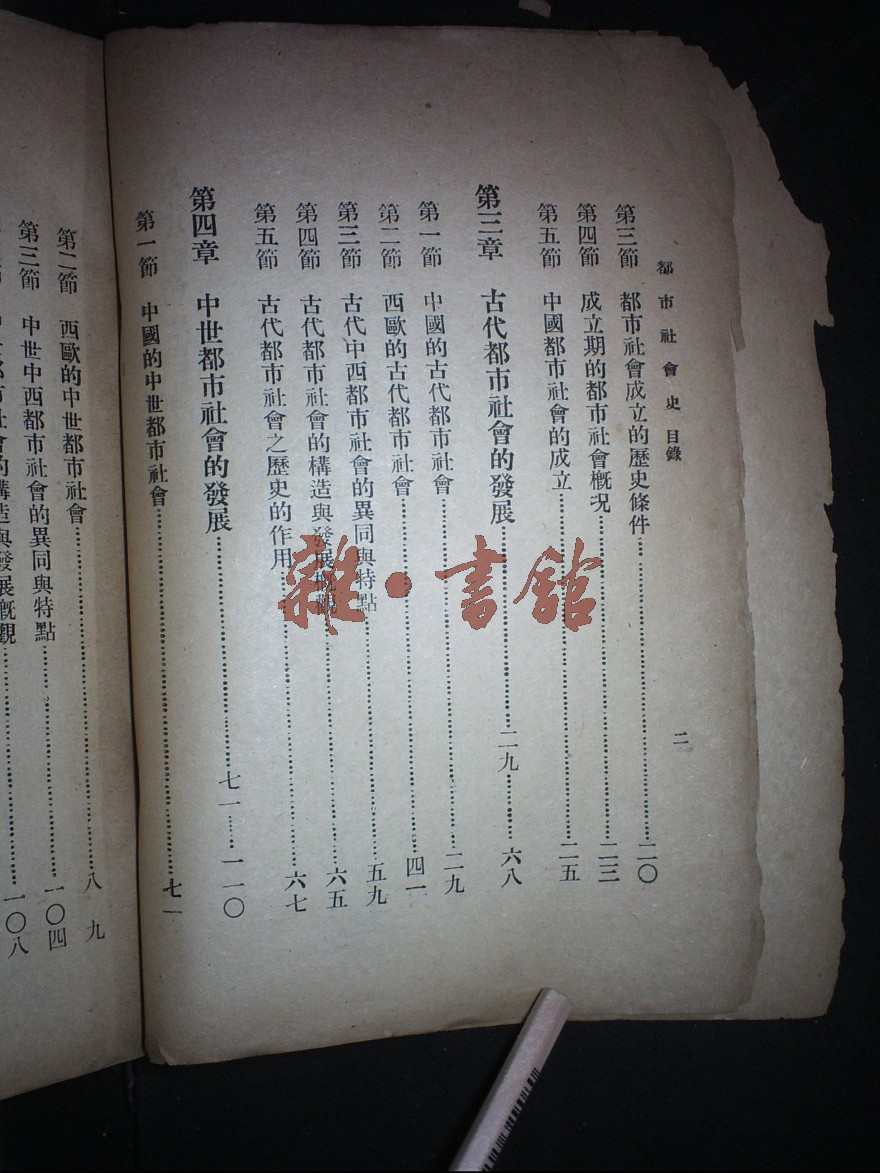 都市社會史 目錄
二
第三節 都市社會成立的歷史條件……二〇
第四節 成立期的都市社會概況……二三
第五節 中國都市社會的成立……二五
第三章 古代都市社會的發展……二九……六八
第一節 中國的古代都市社會……二九
第二節 西歐的古代都市社會……四一
第三節 古代中西都市社會的異同與特點……五九
第四節 古代都市社會的構造與發展概觀……六五
第五節 古代都市社會之歷史的作用……六七
第四章 中世都市社會的發展……七一……一一〇
第一節 中國的中世都市社會……七一
第二節 西歐的中世都市社會……八九
第三節 中世中西都市社會的異同與特點……一〇四
都市社會的構造與發展概觀……一〇八
雜·書館